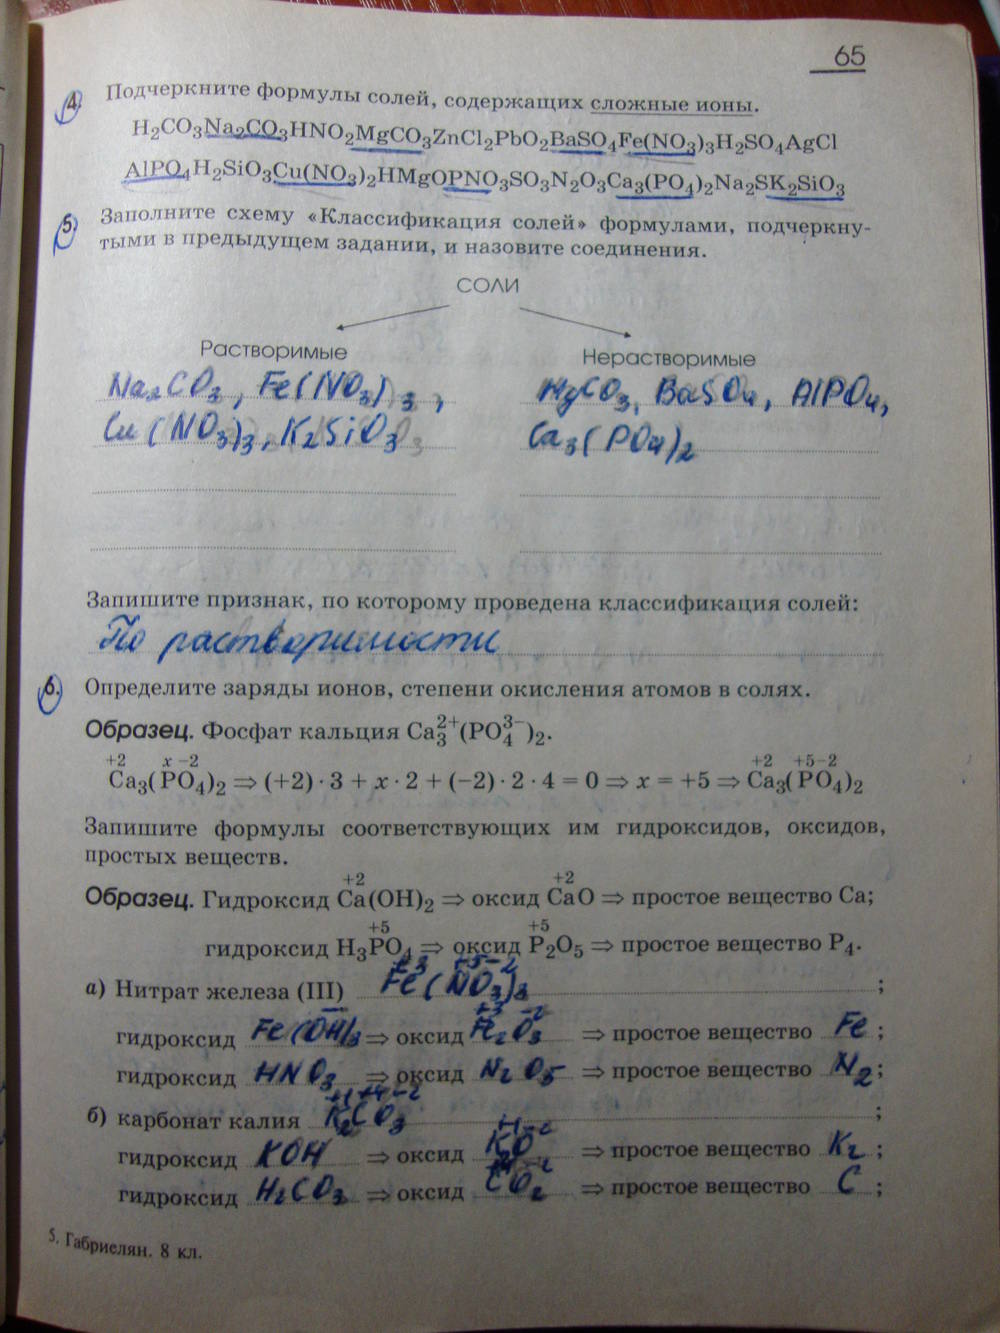 65
4. Подчеркните формулы солей, содержащих сложные ионы.
H₂CO₃Na₂CO₃HNO₂MgCO₃ZnCl₂PbO₂BaSO₄Fe(NO₃)₃H₂SO₄AgCl
AlPO₄H₂SiO₃Cu(NO₃)₂HMgOPNO₃SO₃N₂O₃Ca₃(PO₄)₂Na₂SK₂SiO₃
5. Заполните схему «Классификация солей» формулами, подчеркну-
тыми в предыдущем задании, и назовите соединения.
СОЛИ
Растворимые Нерастворимые
Na₂CO₃, Fe(NO₃)₃, MgCO₃, BaSO₄, AlPO₄,
Cu(NO₃)₃, K₂SiO₃ Ca₃(PO₄)₂
Запишите признак, по которому проведена классификация солей:
По растворимости
6. Определите заряды ионов, степени окисления атомов в солях.
Образец. Фосфат кальция Ca₃²⁺(PO₄³⁻)₂.
+2 x −2 +2 +5−2
Ca₃(PO₄)₂ ⇒ (+2) · 3 + x · 2 + (−2) · 2 · 4 = 0 ⇒ x = +5 ⇒ Ca₃(PO₄)₂
Запишите формулы соответствующих им гидроксидов, оксидов,
простых веществ.
+2 +2
Образец. Гидроксид Ca(OH)₂ ⇒ оксид CaO ⇒ простое вещество Ca;
+5 +5
гидроксид H₃PO₄ ⇒ оксид P₂O₅ ⇒ простое вещество P₄.
+3 +5−2
а) Нитрат железа (III) Fe(NO₃)₃ ;
− +3 −2
гидроксид Fe(OH)₃ ⇒ оксид Fe₂O₃ ⇒ простое вещество Fe ;
гидроксид HNO₃ ⇒ оксид N₂O₅ ⇒ простое вещество N₂ ;
+1+4−2
б) карбонат калия K₂CO₃ ;
+1−2
гидроксид KOH ⇒ оксид K₂O ⇒ простое вещество K₂ ;
+4−2
гидроксид H₂CO₃ ⇒ оксид CO₂ ⇒ простое вещество C ;
5. Габриелян. 8 кл.